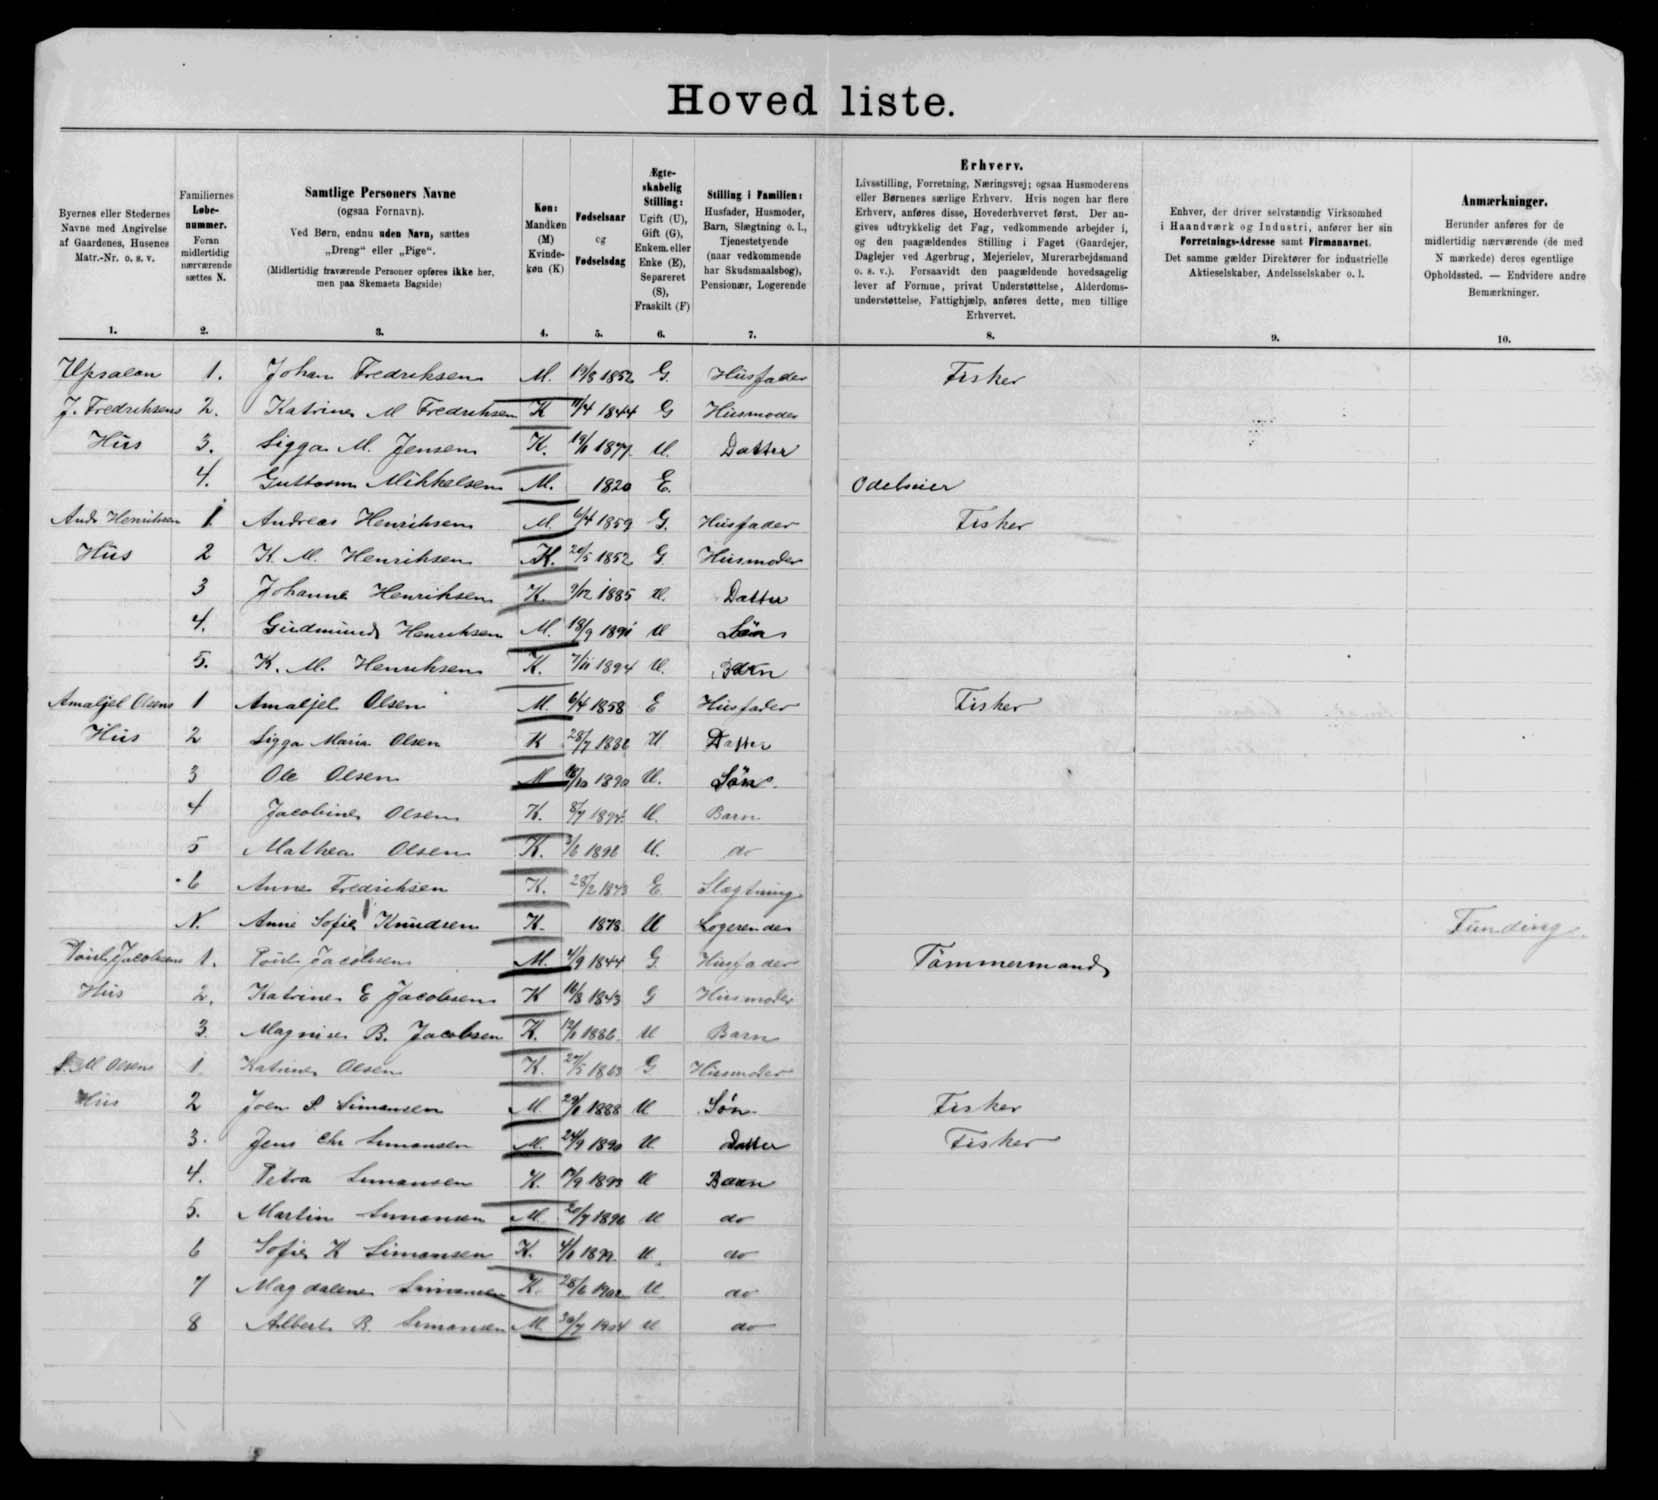 Hoved liste.
Byernes eller Stedernes Navne med Angivelse af Gaardenes, Husenes Matr.-Nr. o. s. v.
Familiernes Løbe-nummer. Foran midlertidig nærværende sættes N.
Samtlige Personers Navne (ogsaa Fornavn). Ved Børn, endnu uden Navn, sættes „Dreng“ eller „Pige“. (Midlertidig fraværende Personer opføres ikke her, men paa Skemaets Bagside)
Køn: Mandkøn (M) Kvinde-køn (K)
Fødselsaar og Fødselsdag
Ægte-skabelig Stilling: Ugift (U), Gift (G), Enkem. eller Enke (E), Separeret (S), Fraskilt (F)
Stilling i Familien: Husfader, Husmoder, Barn, Slægtning o. l., Tjenestetyende (naar vedkommende har Skudsmaalsbog), Pensionær, Logerende
Erhverv. Livsstilling, Forretning, Næringsvej; ogsaa Husmoderens eller Børnenes særlige Erhverv. Hvis nogen har flere Erhverv, anføres disse, Hovederhvervet først. Der angives udtrykkelig det Fag, vedkommende arbejder i, og den paagældendes Stilling i Faget (Gaardejer, Daglejer ved Agerbrug, Mejerielev, Murerarbejdsmand o. s. v.). Forsaavidt den paagældende hovedsagelig lever af Formue, privat Understøttelse, Alderdomsunderstøttelse, Fattighjælp, anføres dette, men tillige Erhvervet.
Enhver, der driver selvstændig Virksomhed i Haandværk og Industri, anfører her sin Forretnings-Adresse samt Firmanavnet. Det samme gælder Direktører for industrielle Aktieselskaber, Andelsselskaber o. l.
Anmærkninger. Herunder anføres for de midlertidig nærværende (de med N mærkede) deres egentlige Opholdssted. — Endvidere andre Bemærkninger.
1. 2. 3. 4. 5. 6. 7. 8. 9. 10.
1. Johan Fredriksen M. 1852 G. Husfader Fisker
J. Fredriksens 2. Katrine M Fredriksen K 11/4 1844 G Husmoder
Hús 3. Sigga M. Jensen K. 1877 U. Datter
4. Mikkelsen M. 1820 E.
Andr Henriksen 1 Andreas Henriksen M. 6/4 1859 G. Husfader Fisker
Hús 2 K. M. Henriksen K. 20/5 1852 G. Husmoder
3 Johanne Henriksen K. 9/12 1885 U. Datter
4. Gúdmúnd Henriksen M. 18/9 1891 U Søn
5. K. M. Henriksen K. 7/11 1894 U. Barn
Amaljel Olsens 1 Amaljel Olsen M. 6/4 1858 E Husfader Fisker
Hús 2 Sigga Maria Olsen K 28/7 1886 U Datter
3 Ole Olsen M 18/10 1890 U. Søn
4 Jacobine Olsen K. 8/7 1894 U. Barn
5 Mathea Olsen K. 3/6 1896 U. do
6 Anne Fredriksen K. 28/2 1843 E Slægtning
N. Anne Sofie Knudsen K. 1878 U Logerende Funding
Jacobsens 1. Jacobsen M. 4/9 1844 G. Husfader Tømmermand
Hús 2. Katrine E Jacobsen K 16/8 1843 G Husmoder
3. B. Jacobsen K. 1886 U Barn
M Olsens 1. Katrine Olsen K. 27/5 1863 G Husmoder
Hús 2 Joen S. Simonsen M 1888 U Søn Fisker
3. Jens Chr Simonsen M. 24/9 1890 U. Datter Fisker
4. Petra Simonsen K. 17/9 1893 U Barn
5. Martin Simonsen M. 20/7 1896 U do
6 Sofie K Simonsen K. 1899 U. do
7 Magdalene Simonsen K. 28/6 1902 U do
8 Albert R. Simonsen M. 30/7 1904 U do